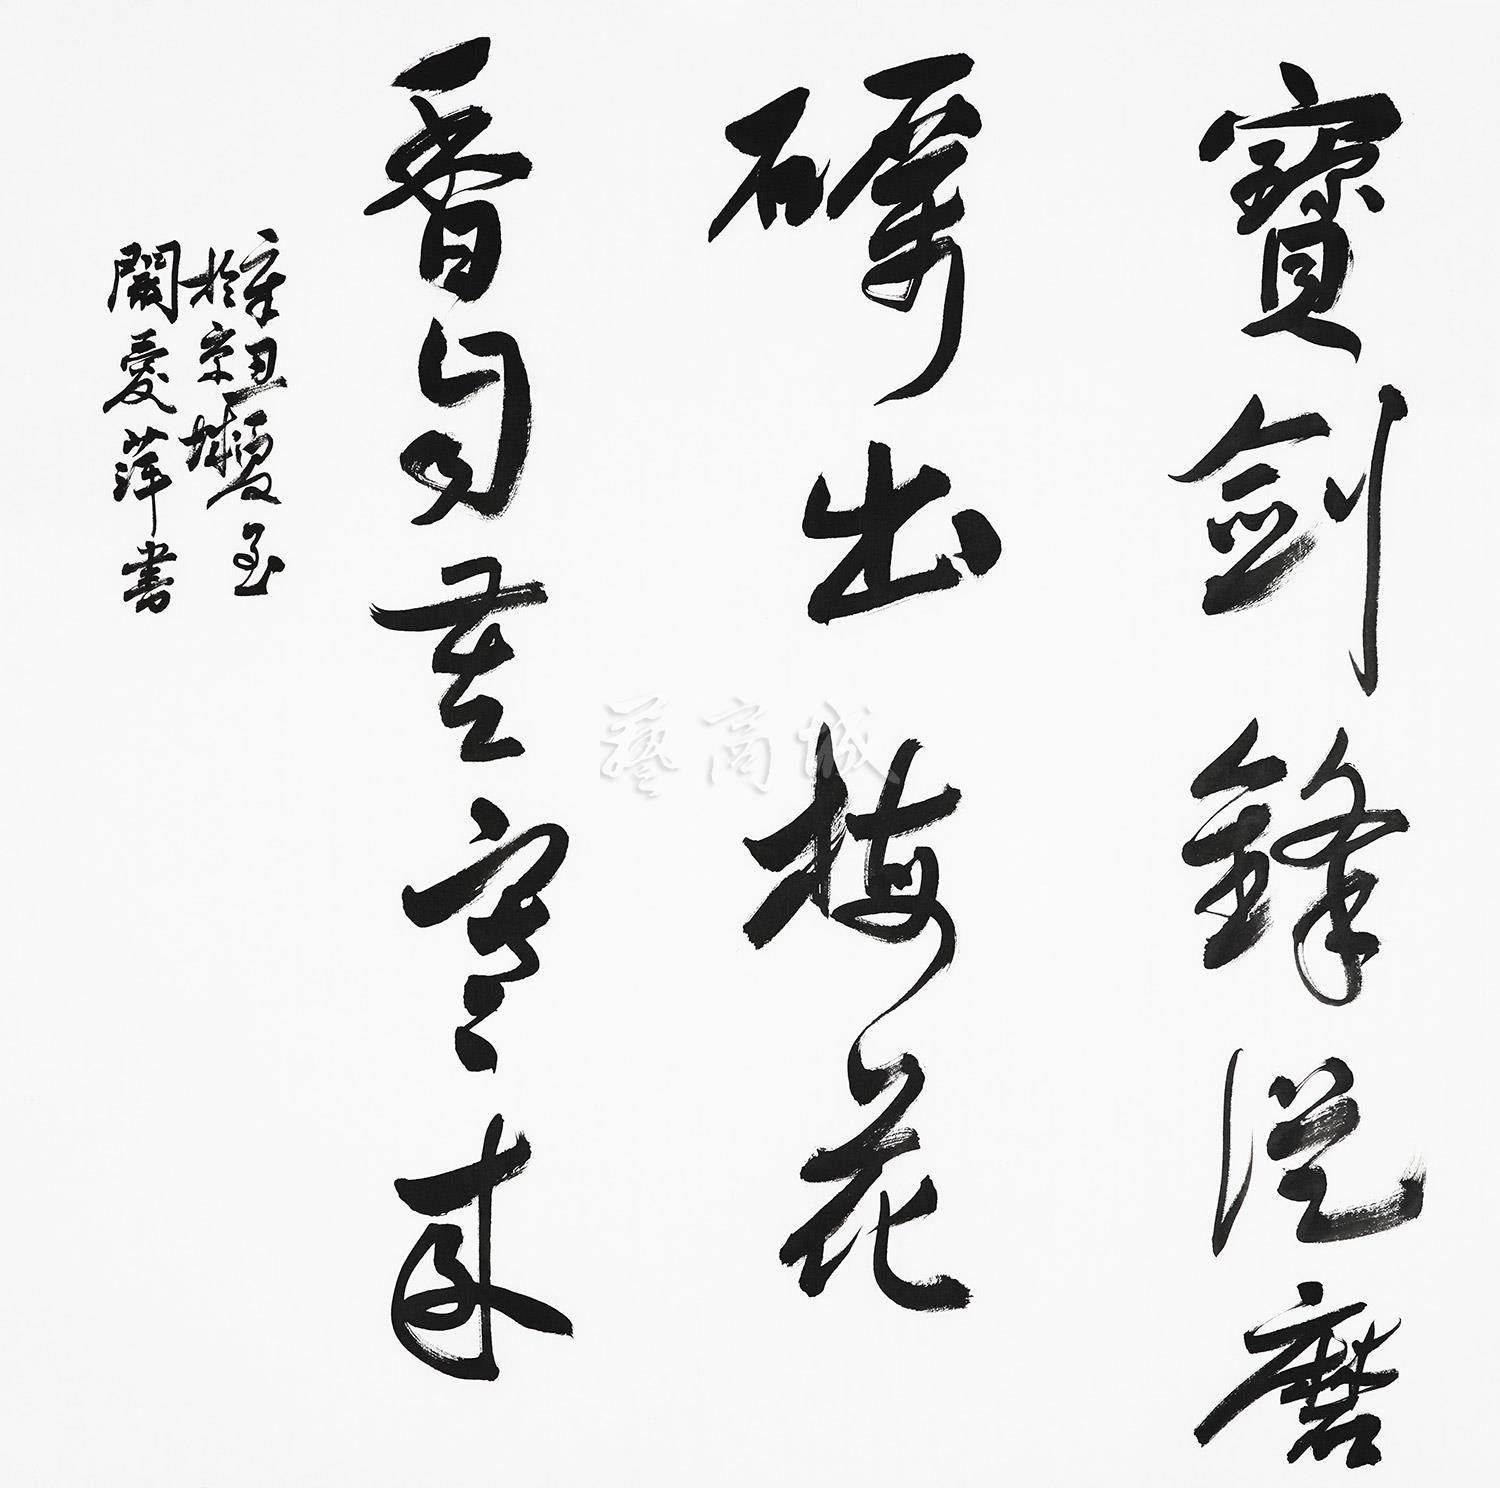 寶劍鋒從磨
礪出梅花
香自苦寒來
辛丑夏至
於京城
闞愛萍書
藝商城